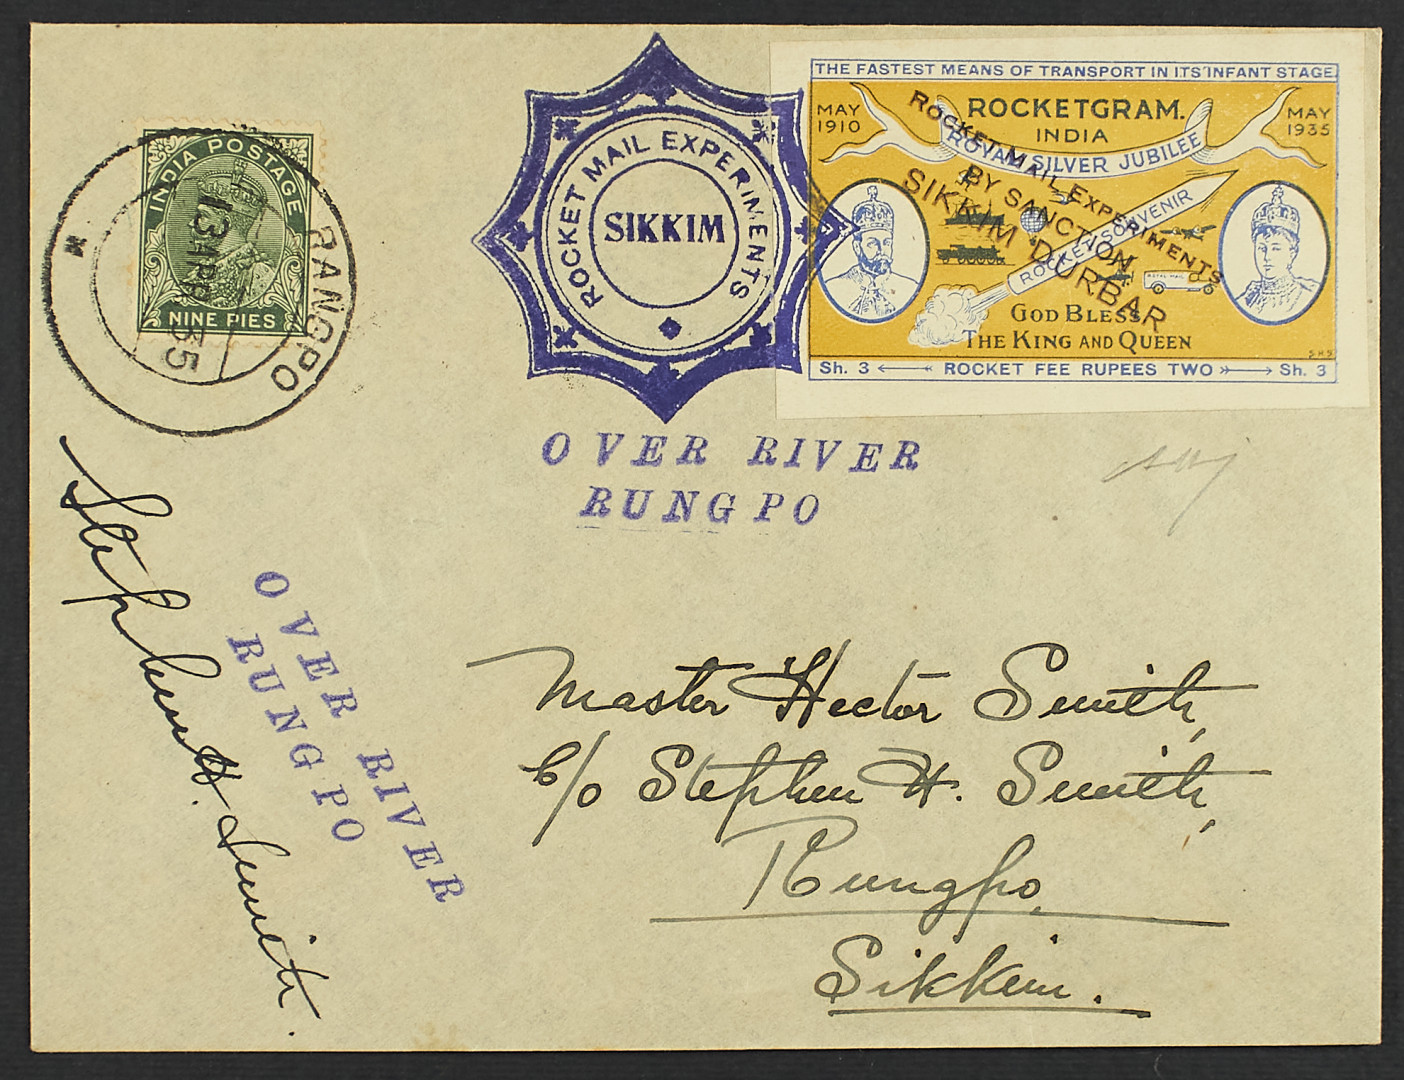 INDIA POSTAGE
NINE PIES
RANGPO
13 APR 35
ROCKET MAIL EXPERIMENTS
SIKKIM
THE FASTEST MEANS OF TRANSPORT IN ITS INFANT STAGE.
MAY 1910
ROCKETGRAM.
MAY 1935
INDIA
ROYAL SILVER JUBILEE
ROCKET MAIL EXPERIMENTS
BY SANCTION
SIKKIM DURBAR
ROCKET SOUVENIR
ROYAL MAIL
GOD BLESS
THE KING AND QUEEN
S.H.S.
Sh. 3 ROCKET FEE RUPEES TWO Sh. 3
OVER RIVER
RUNGPO
OVER RIVER
RUNGPO
Stephen H. Smith.
Master Hector Smith,
C/o Stephen H. Smith,
Rungpo,
Sikkim.